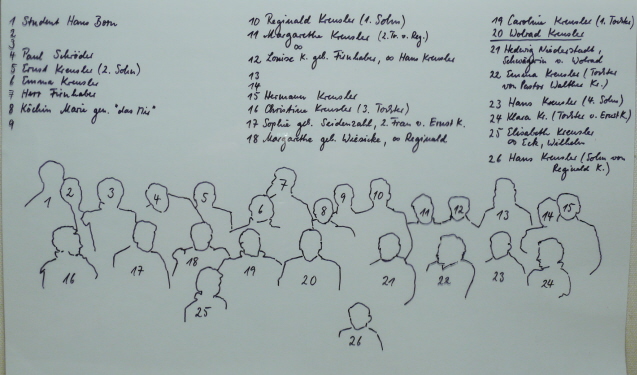 1 Student Hans Born
2
3
4 Paul Schröder
5 Ernst Kreusler (2. Sohn)
6 Emma Kreusler
7 Herr Fürnhaber
8 Köchin Marie gen. "das Mie"
9
10 Reginald Kreusler (1. Sohn)
11 Margarethe Kreusler (2. To. v. Reg.)
∞
12 Louise K. geb. Fürnhaber, ∞ Hans Kreusler
13
14
15 Hermann Kreusler
16 Christine Kreusler (3. Tochter)
17 Sophie geb. Seidenzahl, 2. Frau v. Ernst K.
18 Margarthe geb. Wiesicke, ∞ Reginald
19 Caroline Kreusler (1. Tochter)
20 Wolrad Kreusler
21 Hedwig Niederstadt,
Schwägerin v. Wolrad
22 Emma Kreusler (Tochter
von Pastor Walther Kr.)
23 Hans Kreusler (4. Sohn)
24 Klara Kr. (Tochter v. Ernst K.)
25 Elisabeth Kreusler
∞ Eck, Wilhelm
26 Hans Kreusler (Sohn von
Reginald K.)
1 2 3 4 5 6 7 8 9 10 11 12 13 14 15
16 17 18 19 20 21 22 23 24
25
26